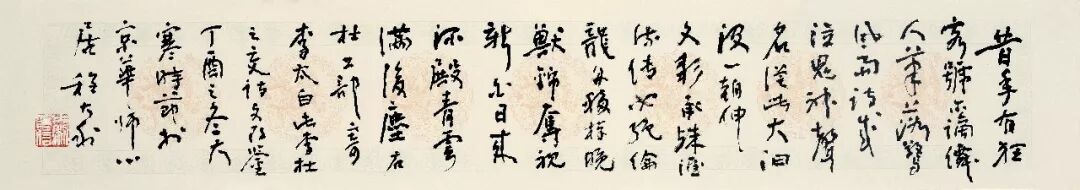 昔年有狂
客號尔謫僊
人筆落驚
風雨詩成
泣鬼神聲
名從此大汩
没一朝伸
文彩承殊渥
流傳必絕倫
龍舟移棹晚
獸錦奪袍
新白日来
深殿青雲
滿後塵右
杜工部寄
李太白此李杜
之交詩文鑒
丁酉之冬大
寒時節於
京華師心
居程大利